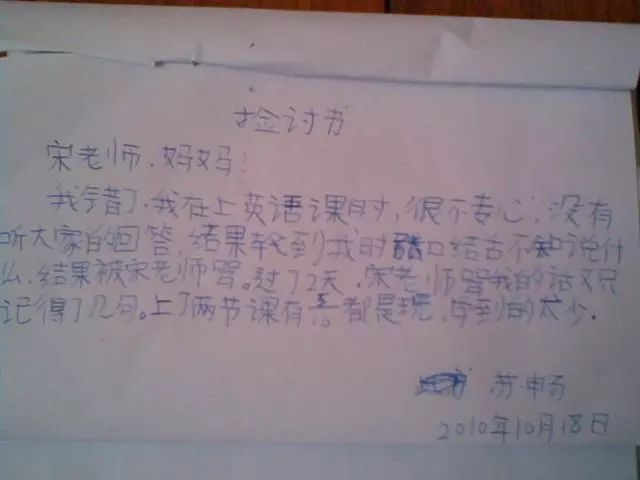 捡讨书
宋老师、妈妈：
我错了，我在上英语课时，很不专心，没有
听大家的回答，结果轮到我时口结舌不知说什
么，结果被宋老师骂。过了2天，宋老师骂我的话又只
记得了几句。上了两节课有 都是玩，学到的太少。
苏畅
2010年10月18日